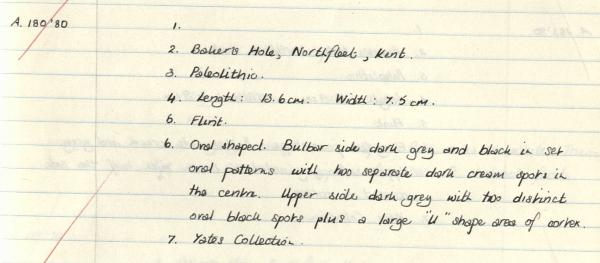 A. 180'80 1.
2. Bakers Hole, Northfleet, Kent.
3. Paleolithic.
4. Length: 13.6cm. Width: 7.5cm.
6. Flint.
6. Oval shaped. Bulbar side dark grey and black in set
oval patterns with two separate dark cream spots in
the centre. Upper side dark grey with two distinct
oval black spots plus a large "U" shape area of cortex.
7. Yates Collection.